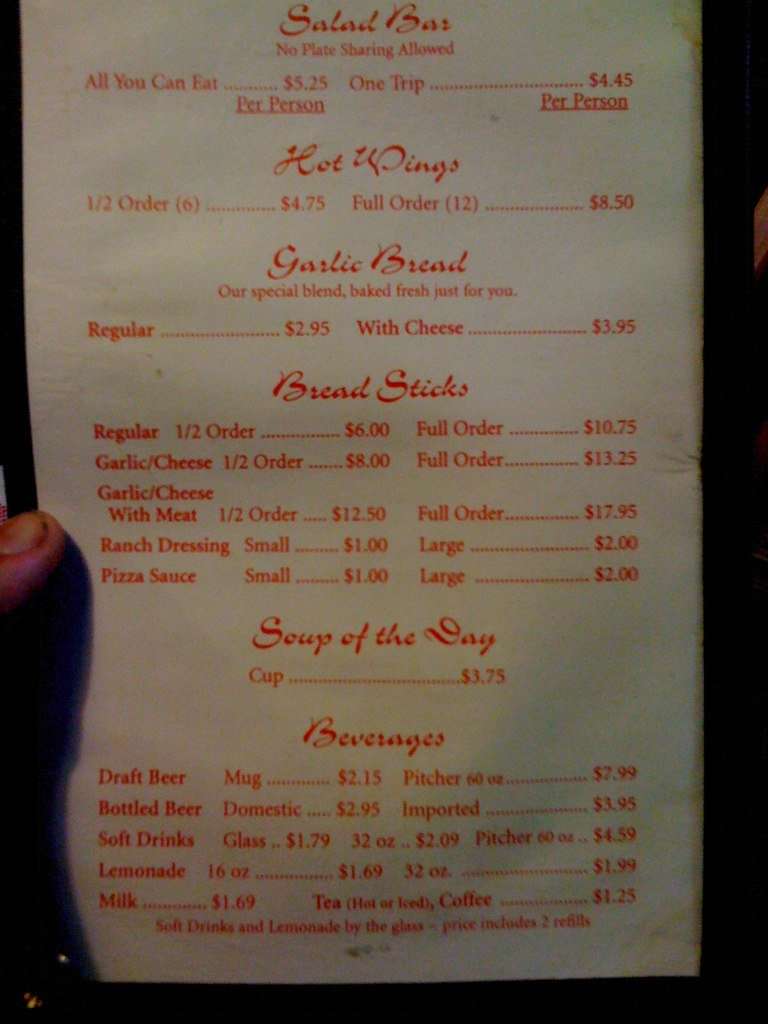 Salad Bar
No Plate Sharing Allowed
All You Can Eat ........... $5.25 One Trip ............................... $4.45
Per Person Per Person
Hot Wings
1/2 Order (6) .............. $4.75 Full Order (12) .................... $8.50
Garlic Bread
Our special blend, baked fresh just for you.
Regular ........................ $2.95 With Cheese ........................ $3.95
Bread Sticks
Regular 1/2 Order ................ $6.00 Full Order .............. $10.75
Garlic/Cheese 1/2 Order ....... $8.00 Full Order............... $13.25
Garlic/Cheese
With Meat 1/2 Order ..... $12.50 Full Order............... $17.95
Ranch Dressing Small ......... $1.00 Large ........................ $2.00
Pizza Sauce Small ......... $1.00 Large ....................... $2.00
Soup of the Day
Cup ...................................$3.75
Beverages
Draft Beer Mug ............. $2.15 Pitcher 60 oz................. $7.99
Bottled Beer Domestic ..... $2.95 Imported ..................... $3.95
Soft Drinks Glass .. $1.79 32 oz .. $2.09 Pitcher 60 oz .. $4.59
Lemonade 16 oz ................ $1.69 32 oz. .......................... $1.99
Milk ............. $1.69 Tea (Hot or Iced), Coffee .................. $1.25
Soft Drinks and Lemonade by the glass – price includes 2 refills